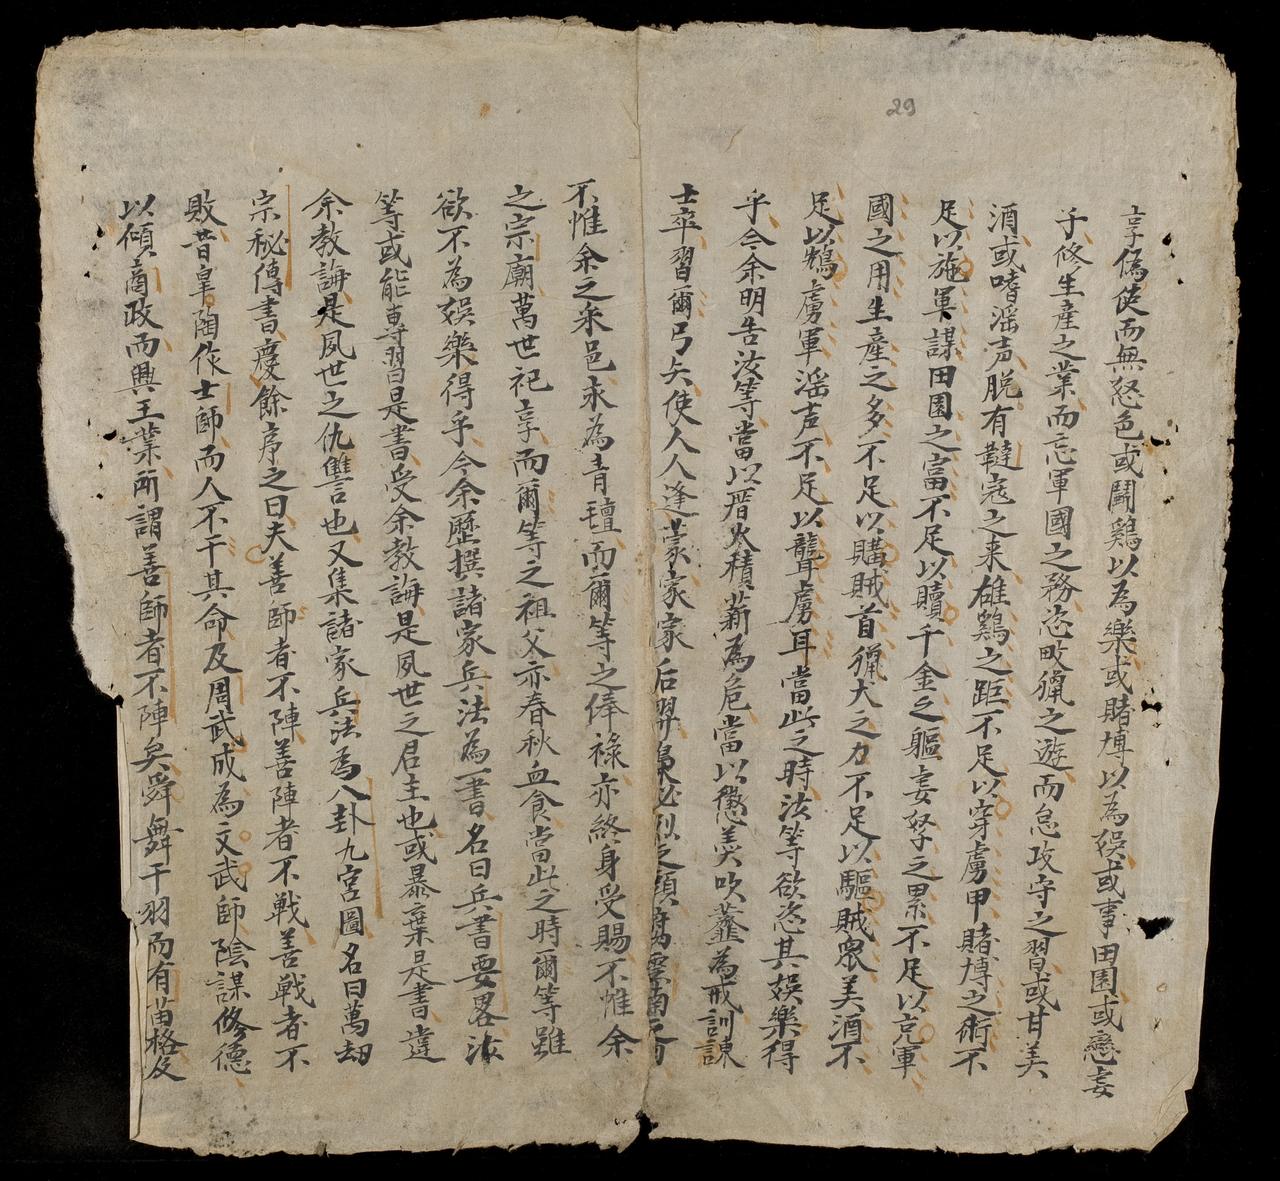 29
享偽使而無怒色或鬪鷄以為樂或賭博以為娛或事田園或戀妻
子修生產之業而忘軍國之務恣畋獵之遊而怠攻守之習或甘美
酒或嗜滛声脱有韃寇之来雄鷄之距不足以穿虜甲賭博之術不
足以施軍謀田園之富不足以贖千金之軀妻孥之累不足以克軍
國之用生產之多不足以購賊首獵犬之力不足以驅賊衆美酒不
足以鴆虜軍滛声不足以聾虜耳當此之時汝等欲恣其娛樂得
乎今余明告汝等當以厝火積薪為危當以懲羹吹虀為戒訓諌
士卒習爾弓矢使人人逢蒙家家后羿梟必烈之頭
不惟余之采邑永為青氊而爾等之俸祿亦終身受賜不惟余
之宗廟萬世祀享而爾等之祖父亦春秋血食當此之時爾等雖
欲不為娛樂得乎今余歷撰諸家兵法為一書名曰兵書要畧汝
等或能專習是書受余教誨是夙世之君主也或暴棄是書違
余教誨是夙世之仇讐也又集諸家兵法為八卦九宮圖名曰萬刼
宗秘傳書慶餘序之曰夫善師者不陣善陣者不戰善戰者不
敗昔皐陶作士師而人不干其命及周武成為文武師陰謀修德
以傾商政而興王業所謂善師者不陣矣舜舞干羽而有苗格及